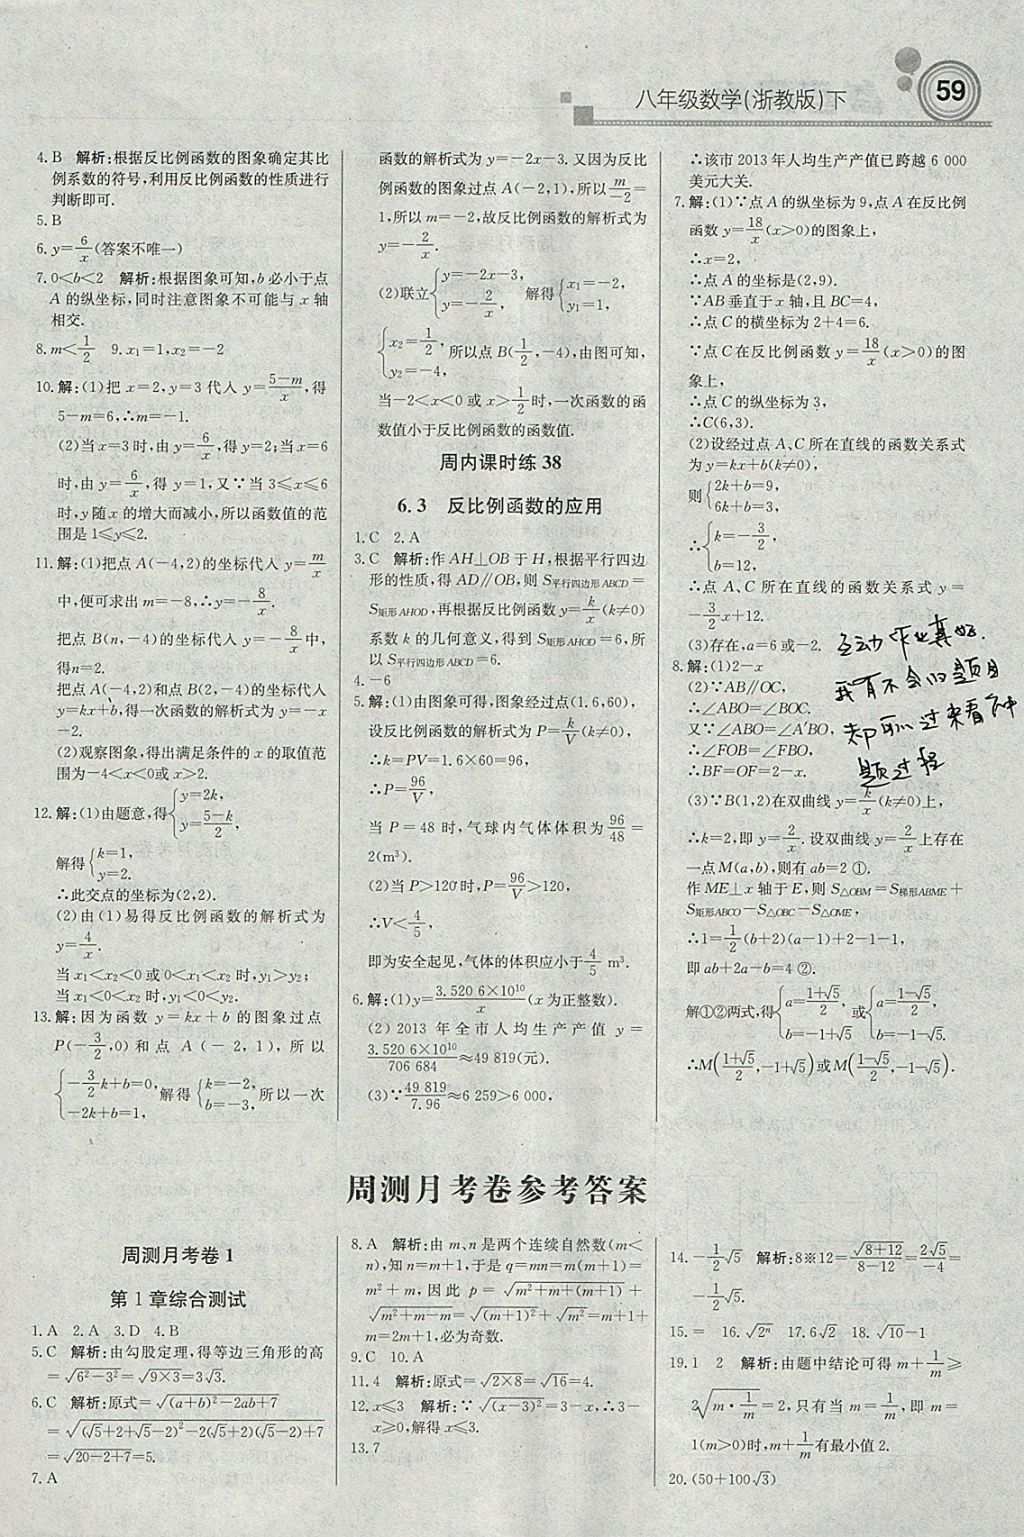 八年级数学(浙教版)下
59
4. B 解析:根据反比例函数的图象确定其比
例系数的符号,利用反比例函数的性质进行
判断即可.
5. B
6. y=6/x(答案不唯一)
7. 0<b<2 解析:根据图象可知,b必小于点
A的纵坐标,同时注意图象不可能与x轴
相交.
8. m<1/2 9. x₁=1,x₂=-2
10. 解:(1)把x=2,y=3代入y=(5-m)/x,得
5-m=6,∴m=-1.
(2)当x=3时,由y=6/x,得y=2;当x=6
时,由y=6/x,得y=1,又∵当3≤x≤6
时,y随x的增大而减小,所以函数值的范
围是1≤y≤2.
11. 解:(1)把点A(-4,2)的坐标代入y=m/x
中,便可求出m=-8,∴y=-8/x.
把点B(n,-4)的坐标代入y=-8/x中,
得n=2.
把点A(-4,2)和点B(2,-4)的坐标代入
y=kx+b,得一次函数的解析式为y=-x
-2.
(2)观察图象,得出满足条件的x的取值范
围为-4<x<0或x>2.
12. 解:(1)由题意,得{y=2k, y=(5-k)/2,
解得{k=1, y=2.
∴此交点的坐标为(2,2).
(2)由(1)易得反比例函数的解析式为
y=4/x.
当x₁<x₂<0或0<x₁<x₂时,y₁>y₂;
当x₁<0<x₂时,y₁<y₂.
13. 解:因为函数y=kx+b的图象过点
P(-3/2,0)和点A(-2,1),所以
{-3/2k+b=0, -2k+b=1, 解得{k=-2, b=-3, 所以一次
函数的解析式为y=-2x-3.又因为反比
例函数的图象过点A(-2,1),所以m/-2=
1,所以m=-2,故反比例函数的解析式为
y=-2/x.
(2)联立{y=-2x-3, y=-2/x, 解得{x₁=-2, y₁=1,
{x₂=1/2, y₂=-4, 所以点B(1/2,-4),由图可知,
当-2<x<0或x>1/2时,一次函数的函
数值小于反比例函数的函数值.
周内课时练38
6.3 反比例函数的应用
1. C 2. A
3. C 解析:作AH⊥OB于H,根据平行四边
形的性质,得AD∥OB,则S平行四边形ABCD=
S矩形AHOD,再根据反比例函数y=k/x(k≠0)
系数k的几何意义,得到S矩形AHOD=6,所
以S平行四边形ABCD=6.
4. -6
5. 解:(1)由图象可得,图象经过点(1.6,60),
设反比例函数的解析式为P=k/V(k≠0),
∴k=PV=1.6×60=96,
∴P=96/V.
当P=48时,气球内气体体积为96/48=
2(m³).
(2)当P>120时,P=96/V>120,
∴V<4/5,
即为安全起见,气体的体积应小于4/5 m³.
6. 解:(1)y=3.520 6×10¹⁰/x(x为正整数).
(2)2013年全市人均生产产值y=
3.520 6×10¹⁰/706 684≈49 819(元).
(3)∵49 819/7.96≈6 259>6 000,
∴该市2013年人均生产产值已跨越6 000
美元大关.
7. 解:(1)∵点A的纵坐标为9,点A在反比例
函数y=18/x(x>0)的图象上,
∴x=2,
∴点A的坐标是(2,9).
∵AB垂直于x轴,且BC=4,
∴点C的横坐标为2+4=6.
∵点C在反比例函数y=18/x(x>0)的图
象上,
∴点C的纵坐标为3,
∴C(6,3).
(2)设经过点A、C所在直线的函数关系式
为y=kx+b(k≠0),
则{2k+b=9, 6k+b=3,
∴{k=-3/2, b=12,
∴点A、C所在直线的函数关系式y=
-3/2x+12.
(3)存在,a=6或-2.
8. 解:(1)2-x
(2)∵AB∥OC,
∴∠ABO=∠BOC.
又∵∠ABO=∠A′BO
∴∠FOB=∠FBO,
∴BF=OF=2-x.
(3)∵B(1,2)在双曲线y=k/x(k≠0)上,
∴k=2,即y=2/x.设双曲线y=2/x上存在
一点M(a,b),则有ab=2 ①.
作ME⊥x轴于E,则S△OBM=S梯形ABME+
S矩形ABCO-S△OBC-S△OME,
∴1=1/2(b+2)(a-1)+2-1-1,
即ab+2a-b=4 ②.
解①②两式,得{a=(1+√5)/2, b=-1+√5 或{a=(1-√5)/2, b=-1-√5.
∴M((1+√5)/2,-1+√5)或M((1-√5)/2,-1-√5).
互动作业真好.
我有不会的题目
却可以过来看
题过程
周测月考卷参考答案
周测月考卷1
第1章综合测试
1. A 2. A 3. D 4. B
5. C 解析:由勾股定理,得等边三角形的高
=√(6²-3²)=√(9×3)=3√3.
6. C 解析:原式=√((a+b)²-2ab+7)
=√((√5+2+√5-2)²-2(√5+2)(√5-2)+7)
=√(20-2+7)=5.
7. A
8. A 解析:由m、n是两个连续自然数(m<
n),知n=m+1,于是q=mn=m(m+1)=
m²+m,因此p=√(m²+m+(m+1))+
√(m²+m-m)=√((m+1)²)+√(m²)=m+1+
m=2m+1,必为奇数.
9. C 10. A
11. 4 解析:原式=√(2×8)=√16=4.
12. x≤3 解析:∵√((x-3)²)=3-x,∴3-
x≥0,解得x≤3.
13. 7
14. -1/2√5 解析:8※12=√(8+12)/(8-12)=2√5/-4=
-1/2√5.
15. = 16. √(2ⁿ) 17. 6√2 18. √10-1
19. 1 2 解析:由题中结论可得m+1/m≥
2√(m·1/m)=2,只有当m=1/m,即m=
1(m>0)时,m+1/m有最小值2.
20. (50+100√3)